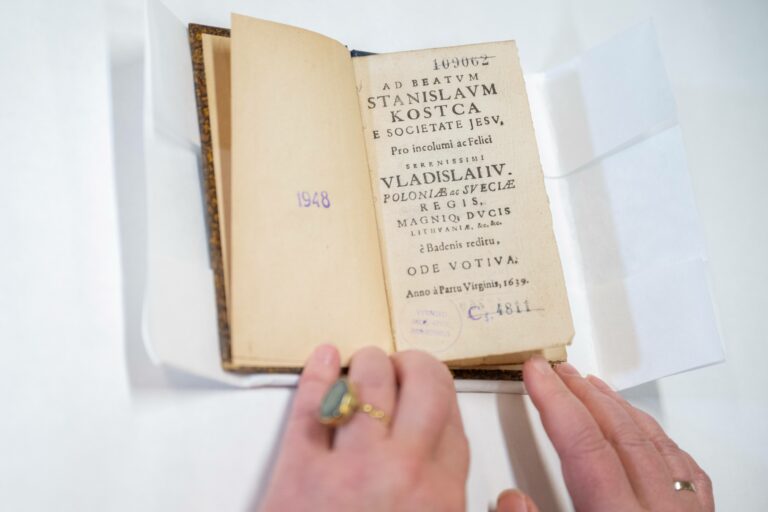 1948
109062
AD BEATVM
STANISLAVM
KOSTCA
E SOCIETATE JESV,
Pro incolumi ac Felici
SERENISSIMI
VLADISLAI IV.
POLONIÆ ac SVECIÆ
REGIS,
MAGNIQ; DVCIS
LITHVANIÆ, &c. &c.
è Badenis reditu,
ODE VOTIVA.
Anno à Partu Virginis, 1639.
4811